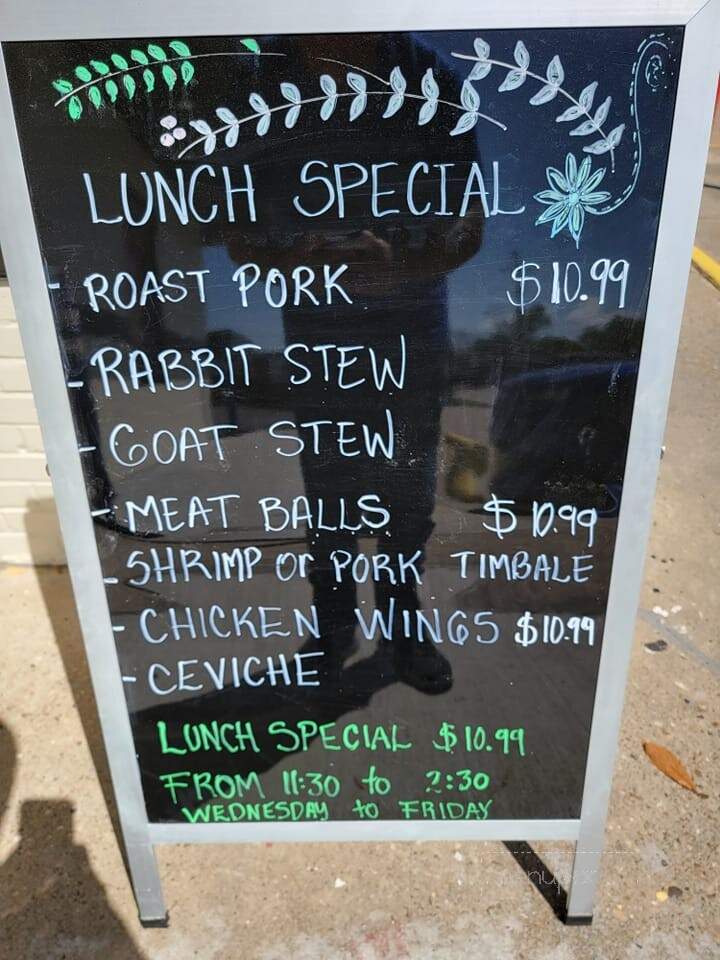 LUNCH SPECIAL
- ROAST PORK $10.99
- RABBIT STEW
- GOAT STEW
- MEAT BALLS $10.99
- SHRIMP or PORK TIMBALE
- CHICKEN WINGS $10.99
- CEVICHE
LUNCH SPECIAL $10.99
FROM 11:30 to 2:30
WEDNESDAY to FRIDAY